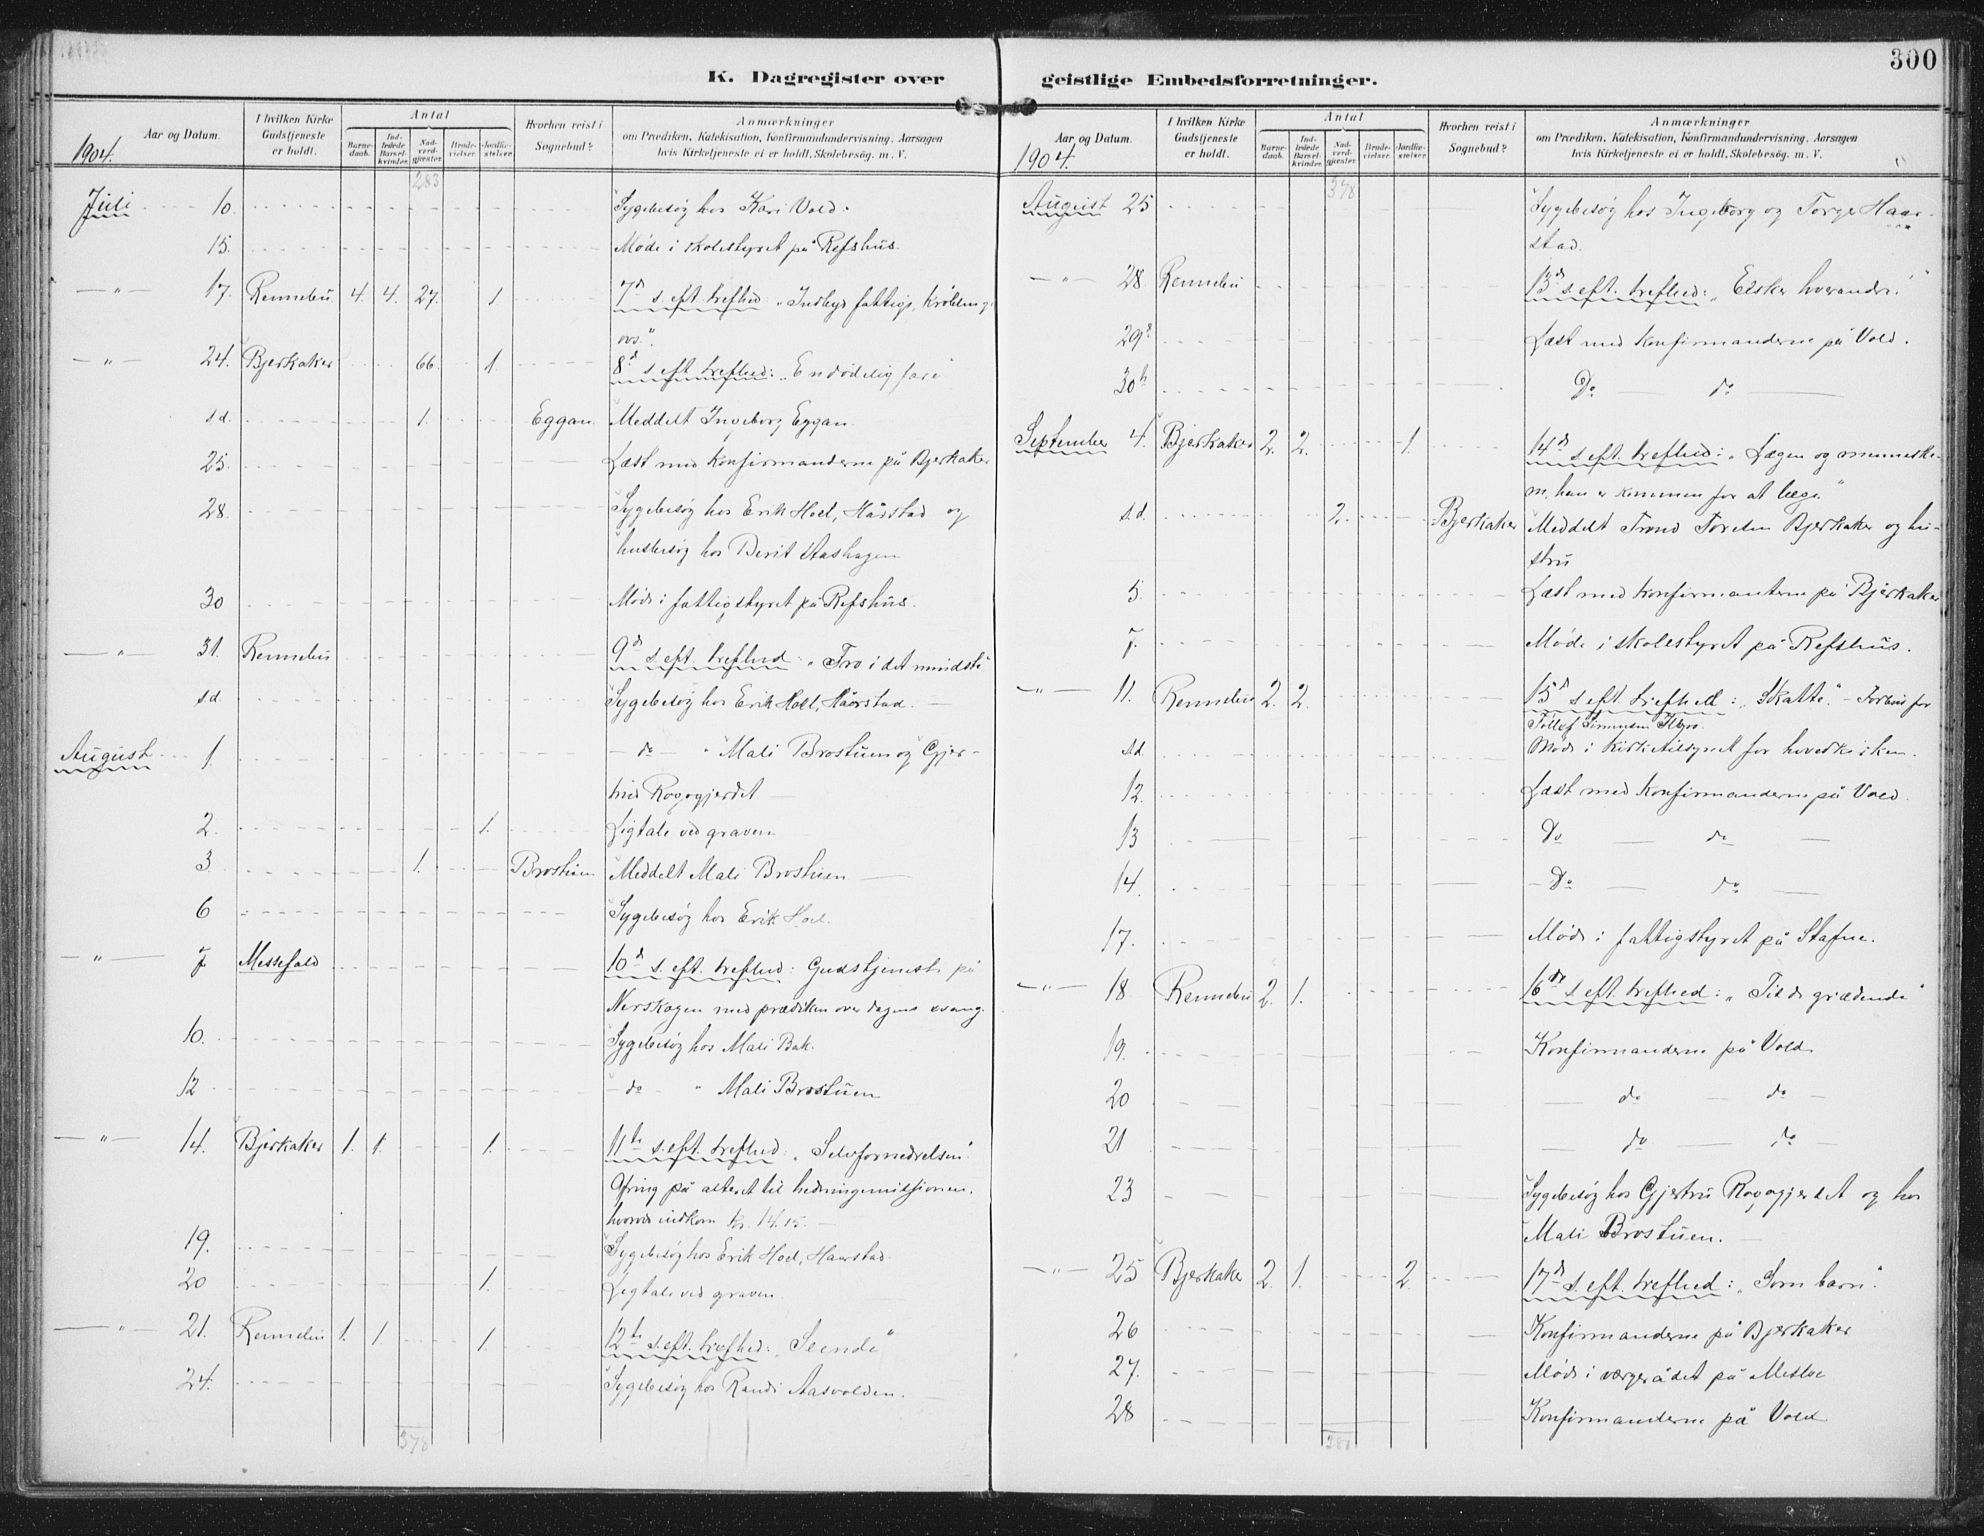 300
K. Dagregister over geistlige Embedsforretninger.
Aar og Datum.
1904.
I hvilken Kirke Gudstjeneste er holdt.
Antal
Barnedaab.
Indledede Barselkvinder.
Nadverdgjester.
Brudevielser.
Jordfæstelser.
Hvorhen reist i Sognebud?
Anmærkninger
om Prædiken, Katekisation, Konfirmandundervisning, Aarsagen
hvis Kirketjeneste ei er holdt, Skolebesøg. m. V.
283
Juli 10. Sygebesøg hos Kari Vold.
15. Møde i skolestyret på Refshus.
—"— 17. Rennebu 4. 4. 27. 1 7d s. eft. trefhed "Indbyd fattige, krøblinge
osv."
—"— 24. Bjerkaker 66. 1 8d s. eft. trefhed: "En dødelig fare"
s.d. 1. Eggan Meddelt Ingeborg Eggan.
25. Læst med konfirmanderne på Bjerkaker
28. Sygebesøg hos Erik Hoel, Hårstad og
husbesøg hos Berit Aashagen
30 Møde i fattigstyret på Refshus.
—"— 31. Rennebu 9d s. eft. trefhed: "Tro i det mindste"
s.d. Sygebesøg hos Erik Hoel, Haarstad.
August 1. — do — " Mali Brostuen og Gjer-
trud Rogogjerdet —
2. 1. Ligtale ved graven
3 1. Brostuen Meddelt Mali Brostuen —
6 Sygebesøg hos Erik Hoel.
—"— 7. Messefald 10d s. eft. trefhed: Gudstjeneste på
Nerskogen med prædiken over dagens evang.
10. Sygebesøg hos Mali Bak.
12 — do — " Mali Brostuen
—"— 14. Bjerkaker 1. 1. 1. 11te s. eft. trefhed: "Selvfornedrelsen".
Ofring på alteret til hedningemissionen,
hvorved indkom kr. 14.15. —
19. Sygebesøg hos Erik Hoel, Haarstad
20 1. Ligtale ved graven
—"— 21. Rennebu 1. 1. 1. 12te s. eft. trefhed: "Seende"
24. Sygebesøg hos Randi Aasvolden.
378
Aar og Datum.
1904.
I hvilken Kirke Gudstjeneste er holdt.
Antal
Barnedaab.
Indledede Barselkvinder.
Nadverdgjester.
Brudevielser.
Jordfæstelser.
Hvorhen reist i Sognebud?
Anmærkninger
om Prædiken, Katekisation, Konfirmandundervisning, Aarsagen
hvis Kirketjeneste ei er holdt, Skolebesøg. m. V.
378
August 25 Sygebesøg hos Ingeborg og Torger Haar-
stad.
—"— 28. Rennebu 13d s. eft. trefhed: "Elsker hverandre!"
29d Læst med konfirmanderne på Vold.
30te Do — do —
September 4. Bjerkaker 2. 2. 1. 14d s. eft. trefhed: "Lægen og menneske-
n, han er kommen for at læge."
s.d. 2. Bjerkaker Meddelt Trond Toresen Bjerkaker og hu-
stru
5. Læst med konfirmanterne på Bjerkaker
7. Møde i skolestyret på Refshus.
—"— 11. Rennebu 2. 2. 15d s. eft. trefhed: "Skatte". — Forbøn for
Tollef Simunsen
s.d. Møde i kirketilsynet for hovedkirken.
12. Læst med konfirmanderne på Vold.
13 Do — do —
14. Do — do —
17. Møde i fattigstyret på Stafne.
—"— 18. Rennebu 2. 1. 16de s. eft. trefhed: "Til de grædende"
19. Konfirmanderne på Vold
20 — do — do —
21 do — do —
23 Sygebesøg hos Gjertru Rogogjerdet og hos
Mali Brostuen. —
—"— 25 Bjerkaker 2. 1. 2. 17d s. eft. trefhed: "Som barn".
26 Konfirmanderne på Bjerkaker
27. Møde i værgerådet på Mesloe
28 Konfirmanderne på Vold
380